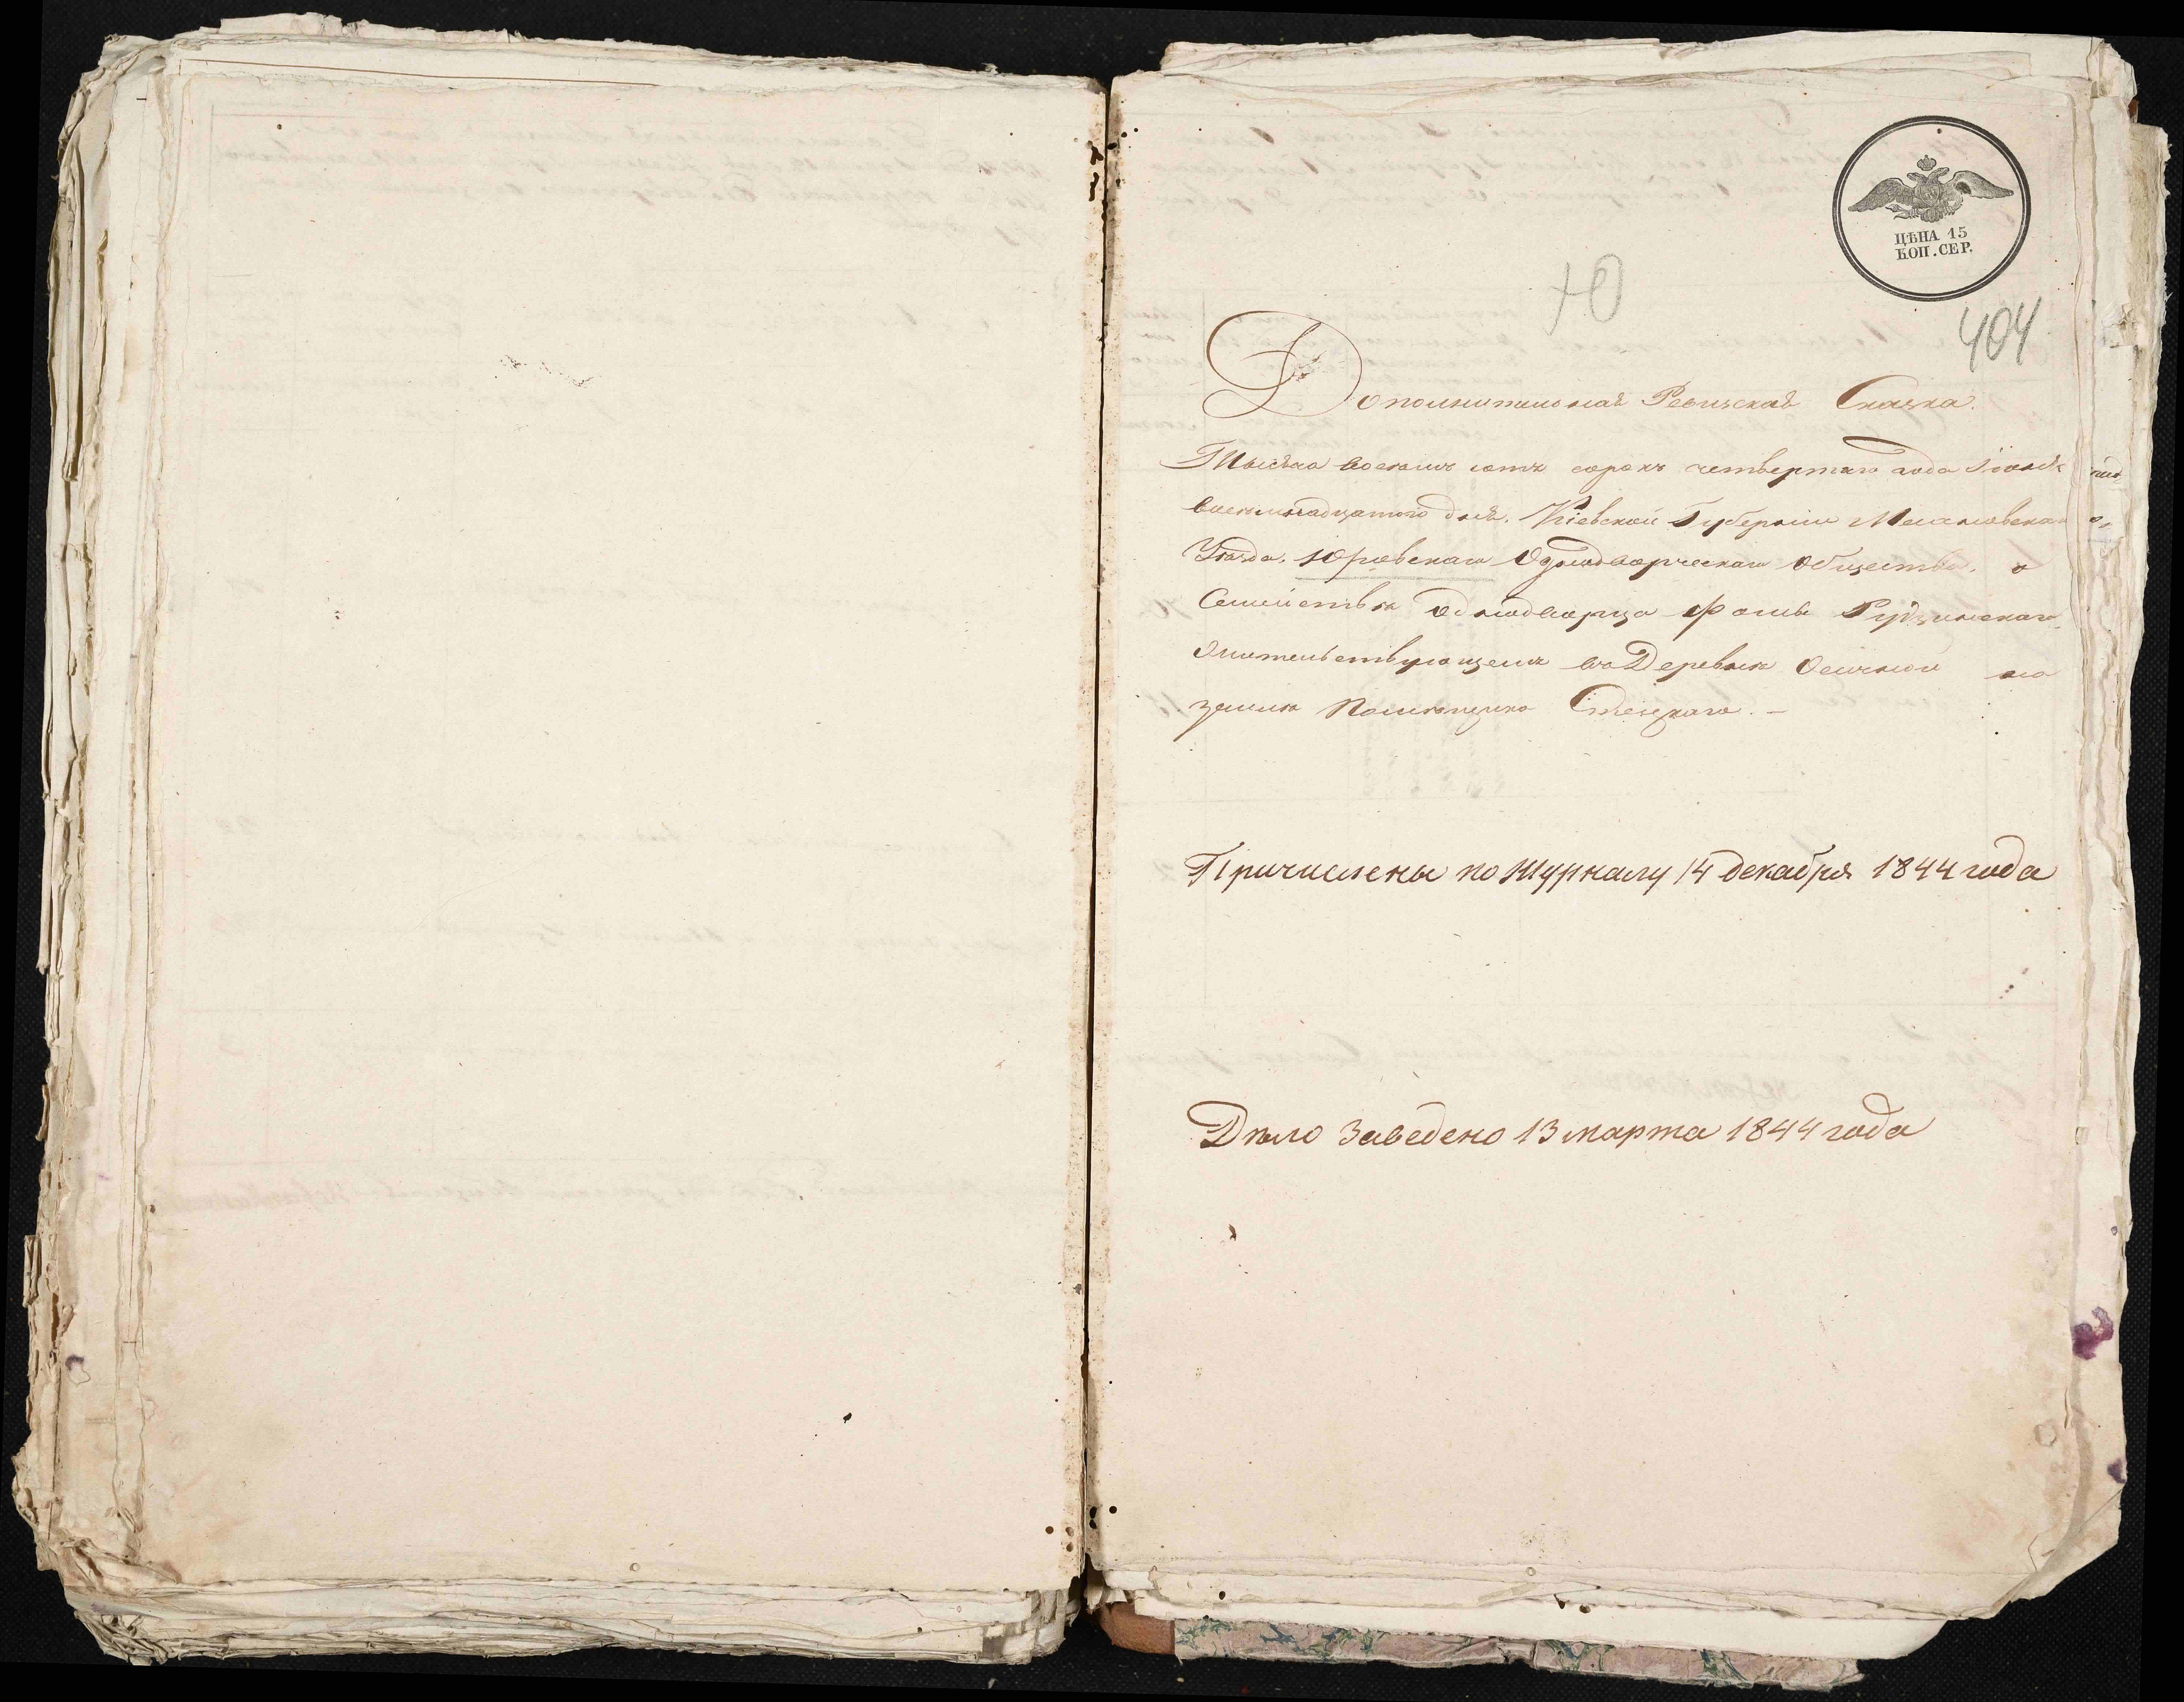 ЦѢНА 15
КОП. СЕР.
Ю
404
Дополнительная Ревизская Сказка.
Тысяча восемь сотъ сорокъ четвертаго года Іюня
восемнадцатого дня. Кіевской Губерніи
Уѣзда. Юровскаго Однодворческаго Общества. о
Семействѣ однодворца Фомы Рудзинскаго
жительствующемъ въ Деревнѣ Осичной на
землѣ Помѣщика Стецкаго. —
Причислены по Журналу 14 декабря 1844 года
Дѣло Заведено 13 марта 1844 года